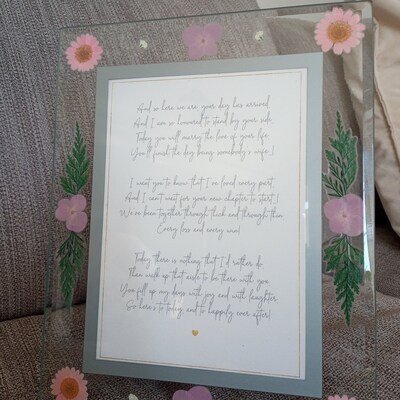 And so here we are, your day has arrived
And I am so honoured to stand by your side
Today you will marry the love of your life
You'll finish the day being somebody's wife!
I want you to know that I've loved every part
And I can't wait for your new chapter to start!
We've been together through thick and through thin
Every loss and every win!
Today there is nothing that I'd rather do,
Than walk up that aisle to be there with you
You fill up my days with joy and with laughter,
So here's to today, and to happily ever after!